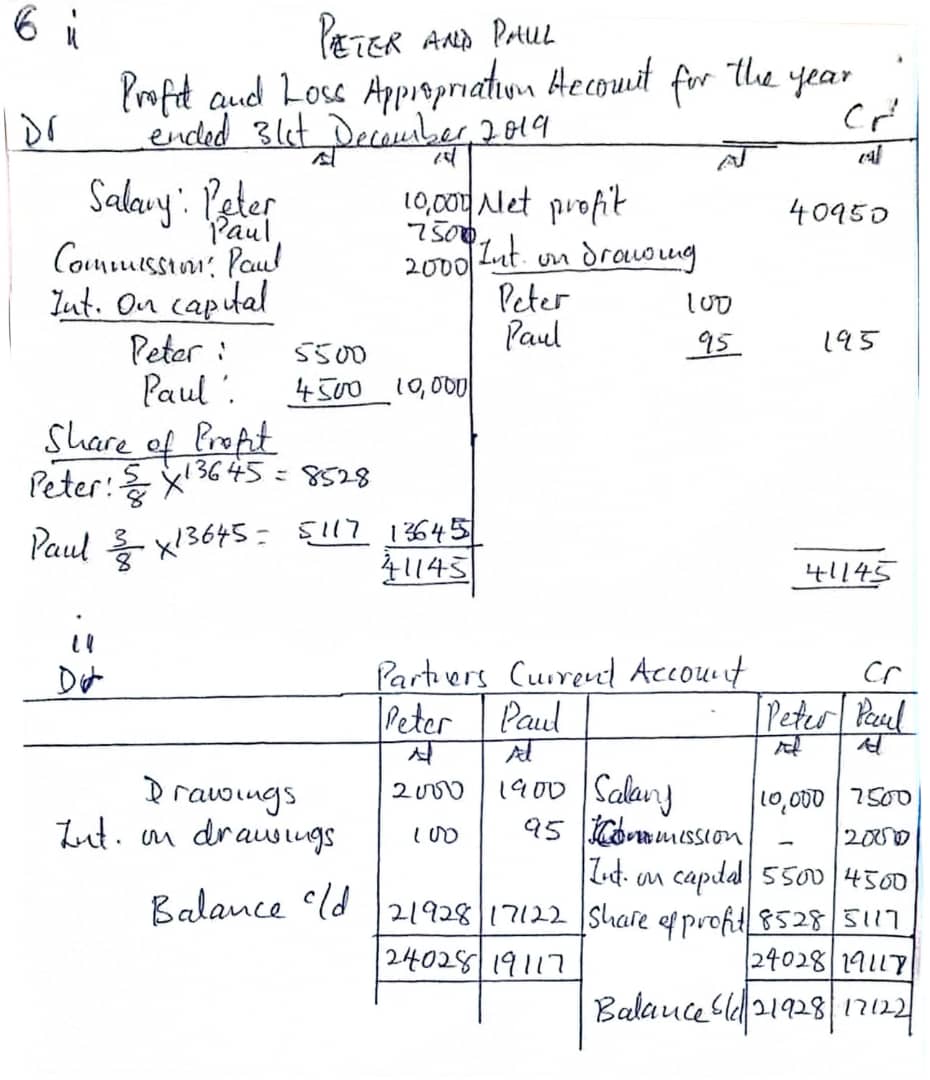 6 ii
PETER AND PAUL
Profit and Loss Appropriation Account for the year
ended 31st December, 2019
Dr Cr
₦ ₦ ₦ ₦
Salary: Peter 10,000 Net profit 40950
Paul 7500
Commission: Paul 2000 Int. on drawing
Int. On capital Peter 100
Peter: 5500 Paul 95 195
Paul: 4500 10,000
Share of Profit
Peter: 5/8 x 13645 = 8528
Paul 3/8 x 13645 = 5117 13645
41145 41145
ii
Dr Partners Current Account Cr
Peter Paul Peter Paul
₦ ₦ ₦ ₦
Drawings 2000 1900 Salary 10,000 7500
Int. on drawings 100 95 Commission - 2000
Int. on capital 5500 4500
Balance c/d 21928 17122 Share of profit 8528 5117
24028 19117 24028 19117
Balance b/d 21928 17122